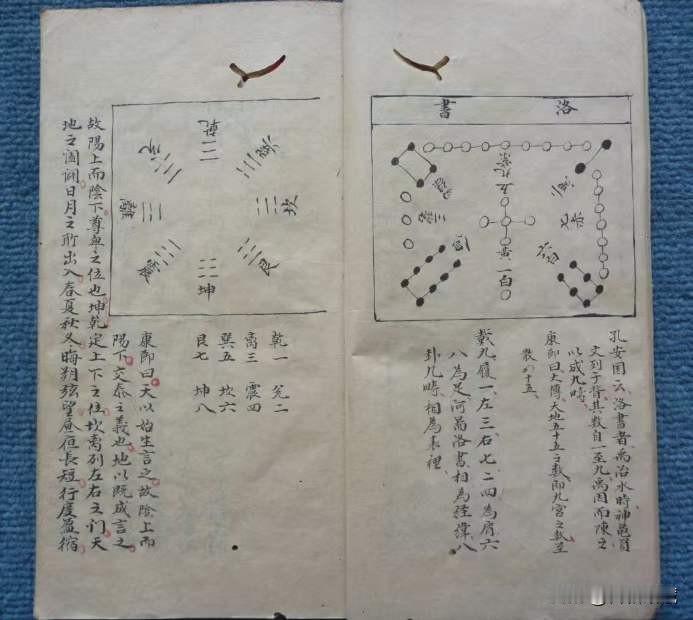 洛書
九紫
五
黃
一白
七赤
六白
孔安国云洛書者禹治水時神龟負
文列于背其数自一至九禹因而陳之
以成九畴
康節曰大傳天地五十五之数即九宮之数至
十五
戴九履一左三右七二四為肩六
八為足河啚洛書相為經緯八
卦九畴相為表裡
乾
兌
離
震
巽
坎
艮
坤
乾一 兌二
离三 震四
巽五 坎六
艮七 坤八
康節曰天以始生言之故陰上而
陽下交泰之義也地以既成言之
故陽上而陰下尊卑之位也坤乾定上下之位坎离列左右之门天
地之阖闢日月之所出入春夏秋冬晦朔弦望昼夜長短行度盈缩